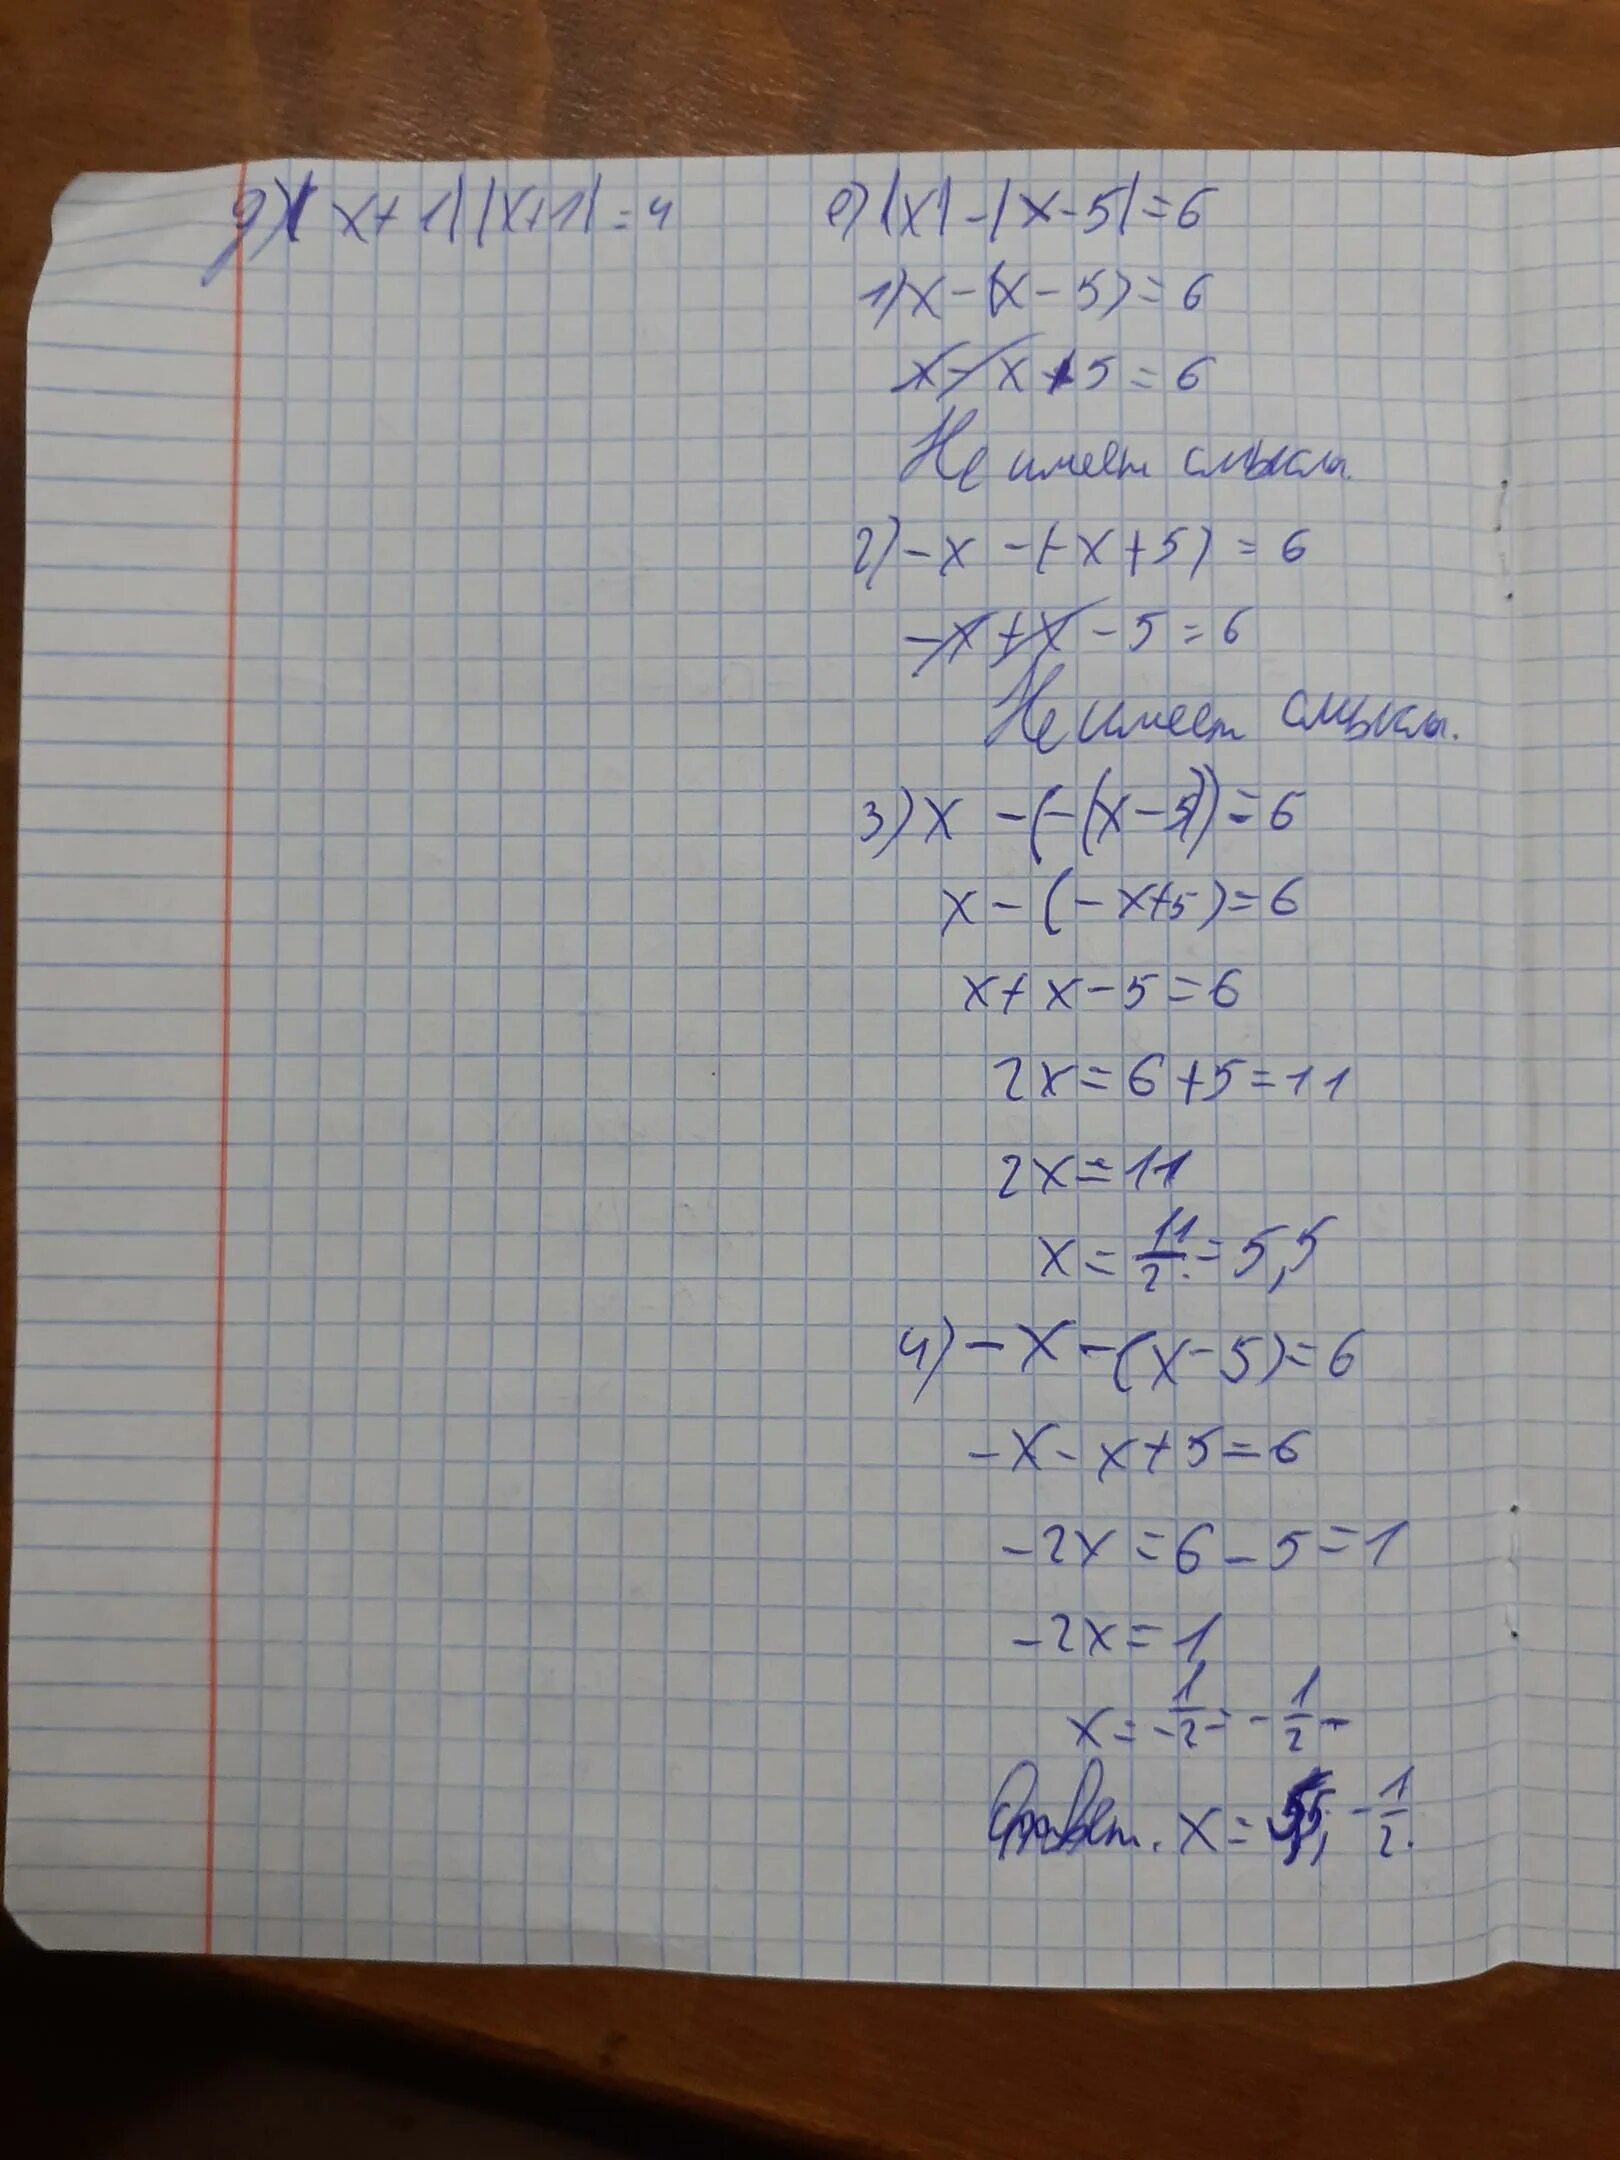 д) |x+1||x+1|=4
е) |x|-|x-5|=6
1) x-(x-5)=6
x-x+5=6
Не имеет смысла.
2) -x-(-x+5)=6
-x+x-5=6
Не имеет смысла.
3) x-(-(x-5))=6
x-(-x+5)=6
x+x-5=6
2x=6+5=11
2x=11
x=11/2=5,5
4) -x-(x-5)=6
-x-x+5=6
-2x=6-5=1
-2x=1
x=1/-2=-1/2
Ответ. x= -1/2.